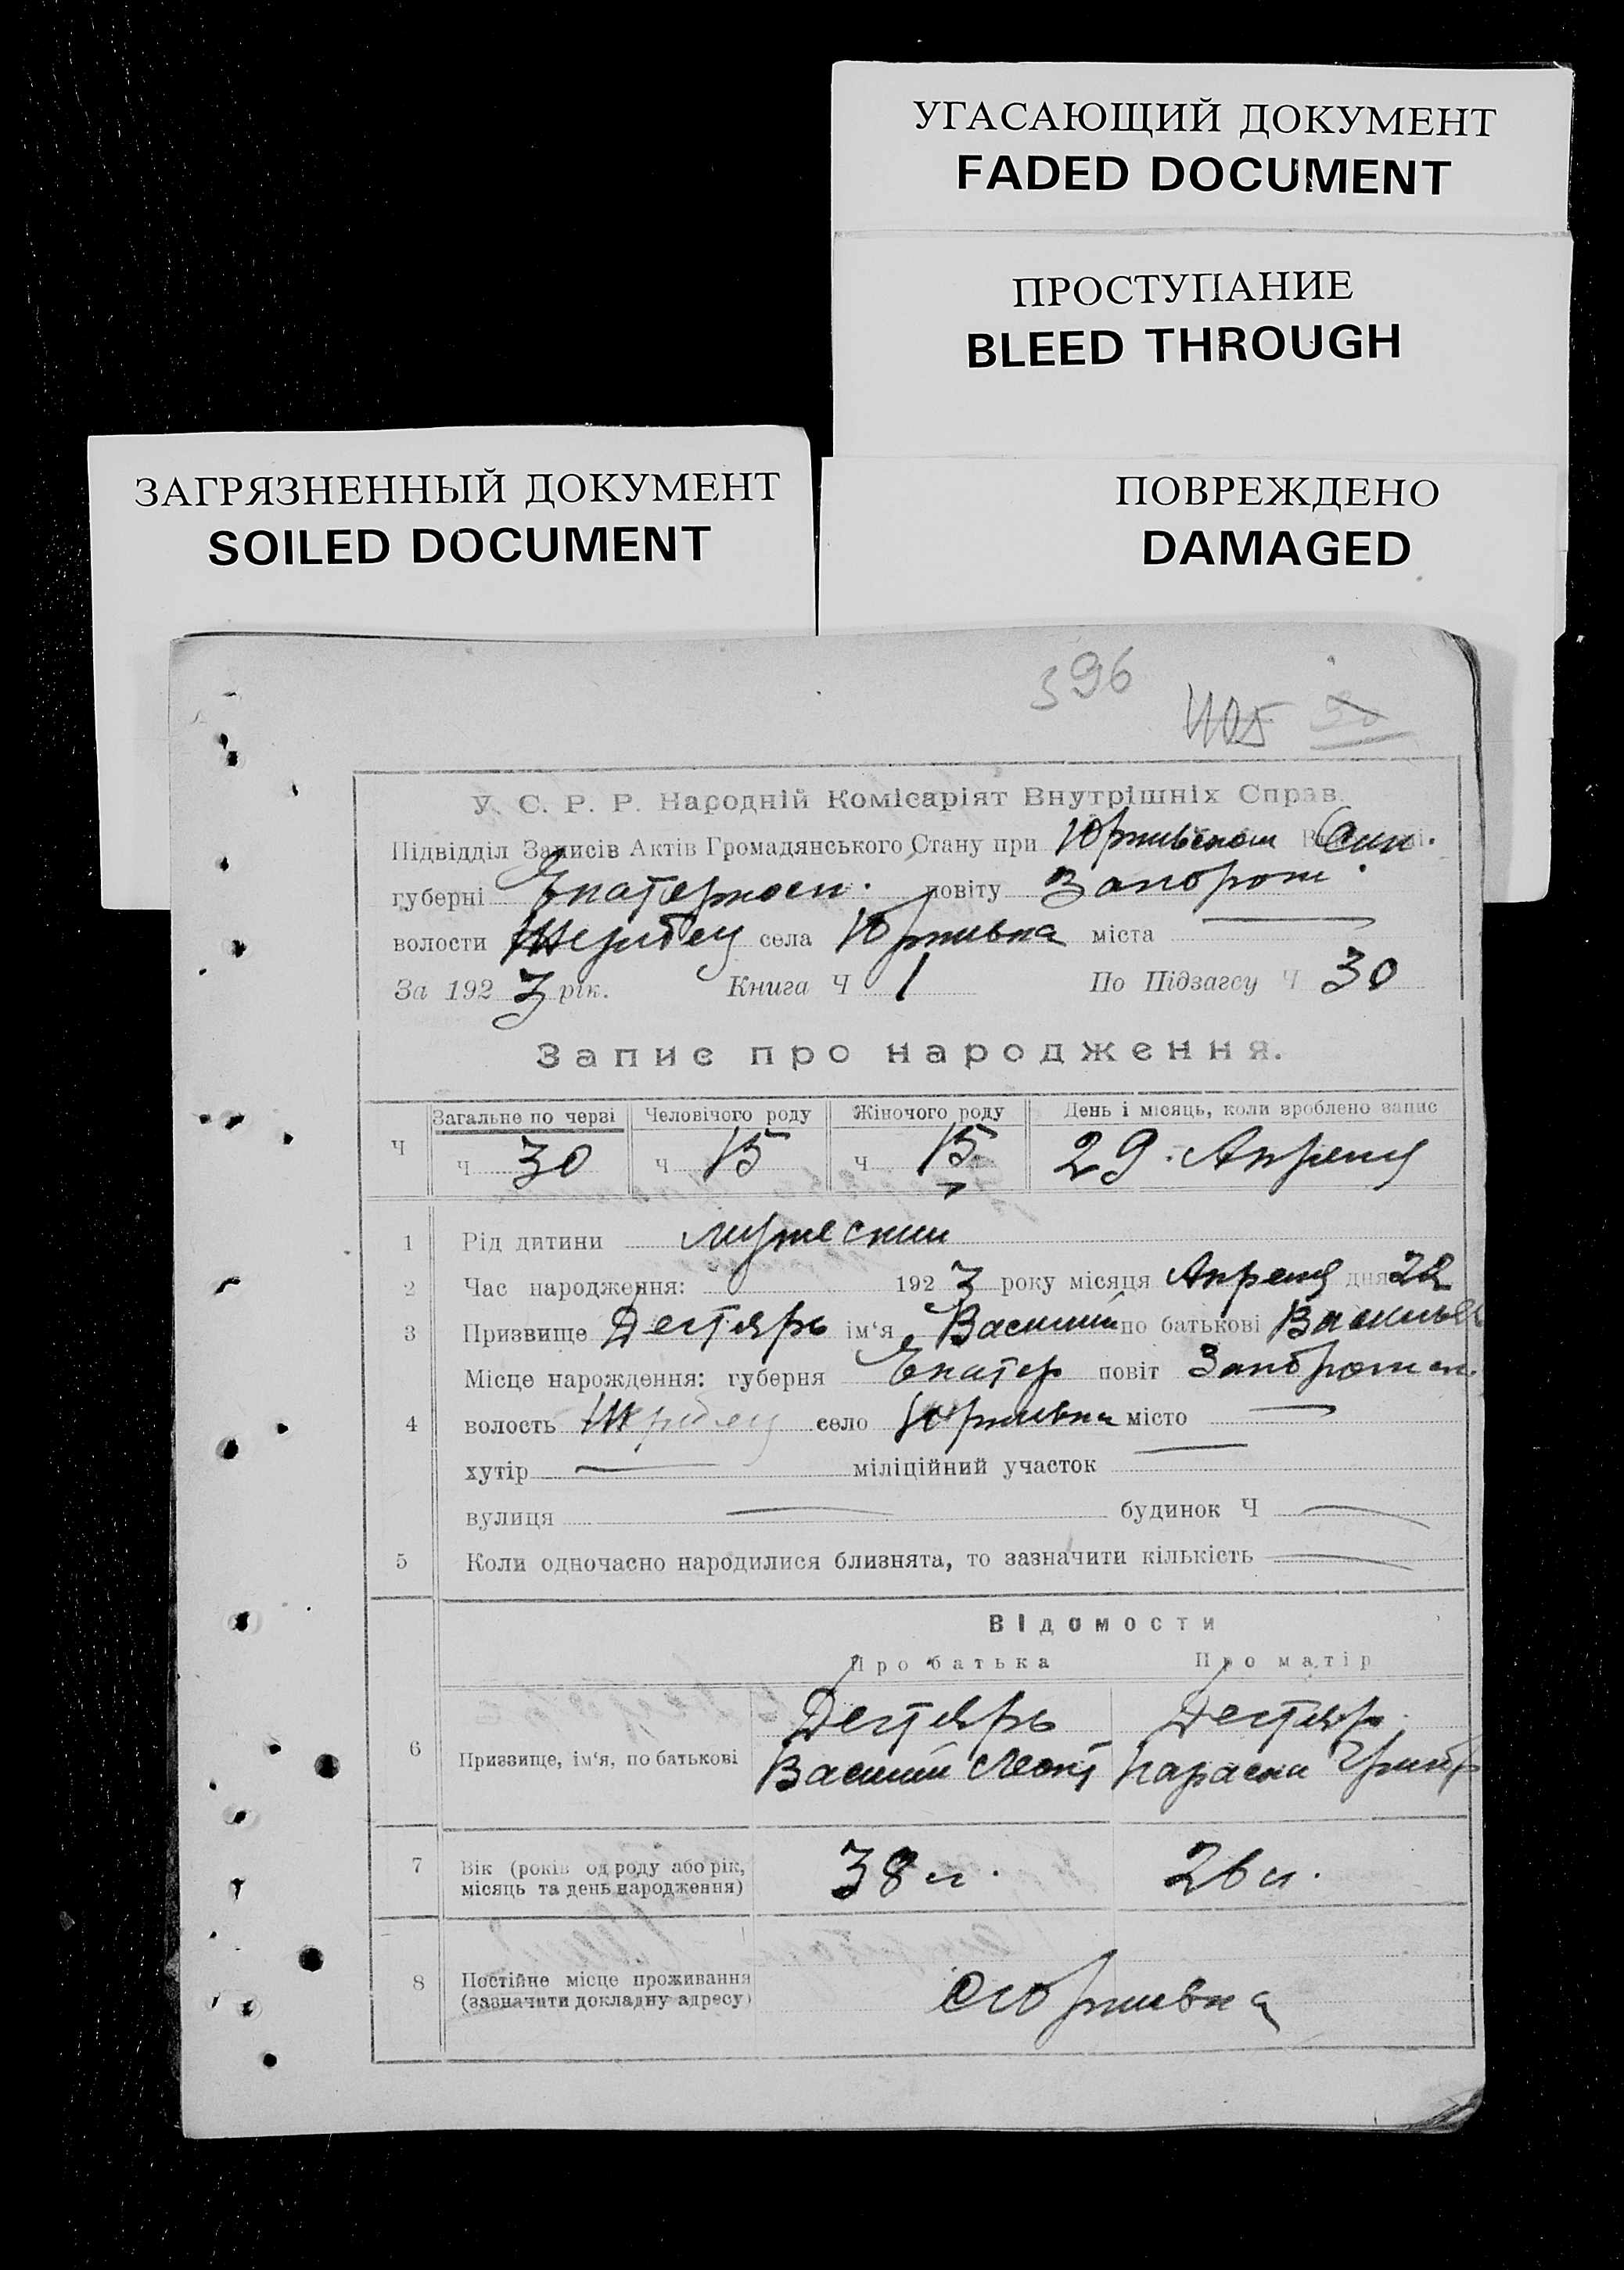 УГАСАЮЩИЙ ДОКУМЕНТ
FADED DOCUMENT
ПРОСТУПАНИЕ
BLEED THROUGH
ЗАГРЯЗНЕННЫЙ ДОКУМЕНТ
SOILED DOCUMENT
ПОВРЕЖДЕНО
DAMAGED
396
405
У. С. Р. Р. Народній Комісаріят Внутрішніх Справ.
Підвідділ Записів Актів Громадянського Стану при
губерні Екатериносл. повіту Запорож.
волости села міста
За 1923 рік. Книга Ч 1 По Підзагсу Ч 30
Запис про народження.
Загальне по черзі Человічого роду Жіночого роду День і місяць, коли зроблено запис
Ч ч 30 ч 15 ч 15 29 Апреля
1 Рід дитини мужеский
2 Час народження: 1923 року місяця Апреля дня 22
3 Призвище Дегтярь ім‘я Василий по батькові Васильев
Місце народження: губерня Екатер повіт Запорож
4 волость село місто
хутір міліційний участок
вулиця будинок Ч
5 Коли одночасно народилися близнята, то зазначити кількість
Відомости
Про батька Про матір
Дегтярь Дегтяр
6 Призвище, ім‘я, по батькові Василий Леонт Параска Григор
7 Вік (років од роду або рік, 38 л. 26 л.
місяць та день народження)
8 Постійне місце проживання
(зазначити докладну адресу)